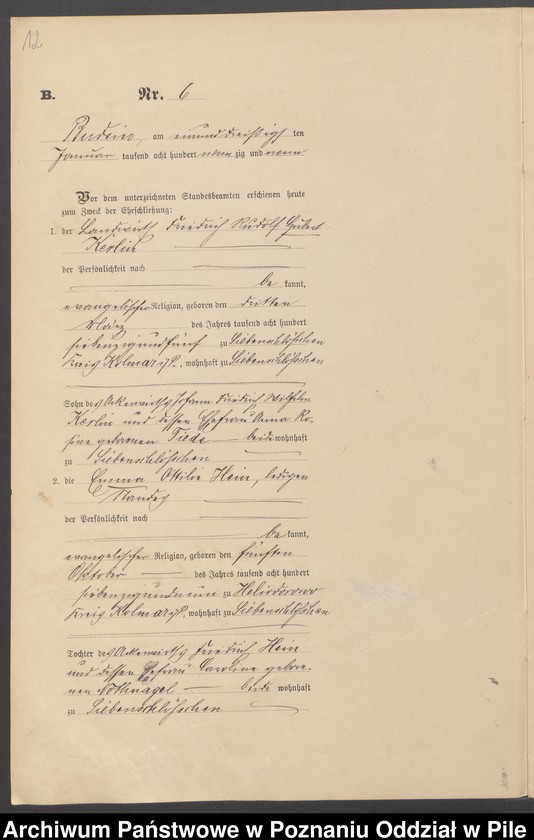 12
B. Nr. 6
Budsin, am einunddreißigsten
Januar tausend acht hundert neunzig und neun
Vor dem unterzeichneten Standesbeamten erschienen heute
zum Zweck der Eheschließung:
1. der Landwirth Friedrich Rudolf
Kerlin
der Persönlichkeit nach
bekannt,
evangelischer Religion, geboren den dritten
März des Jahres tausend acht hundert
siebenzigundfünf zu Siebenschlößchen
Kreis Kolmar i/P., wohnhaft zu Siebenschlößchen
Sohn des Ackerwirths Johann Friedrich Wilhelm
Kerlin und dessen Ehefrau Anna Ro-
sine geborenen Tiede beide wohnhaft
zu Siebenschlößchen
2. die Emma Ottilie Hein, ledigen
Standes
der Persönlichkeit nach
bekannt,
evangelischer Religion, geboren den fünften
Oktober des Jahres tausend acht hundert
siebenzigundneun zu Heliodorowo
Kreis Kolmar i/P., wohnhaft zu Siebenschlößchen
Tochter des Ackerwirths Friedrich Hein
und dessen Ehefrau Caroline gebore-
nen Nothnagel beide wohnhaft
zu Siebenschlößchen
Archiwum Państwowe w Poznaniu Oddział w Pile